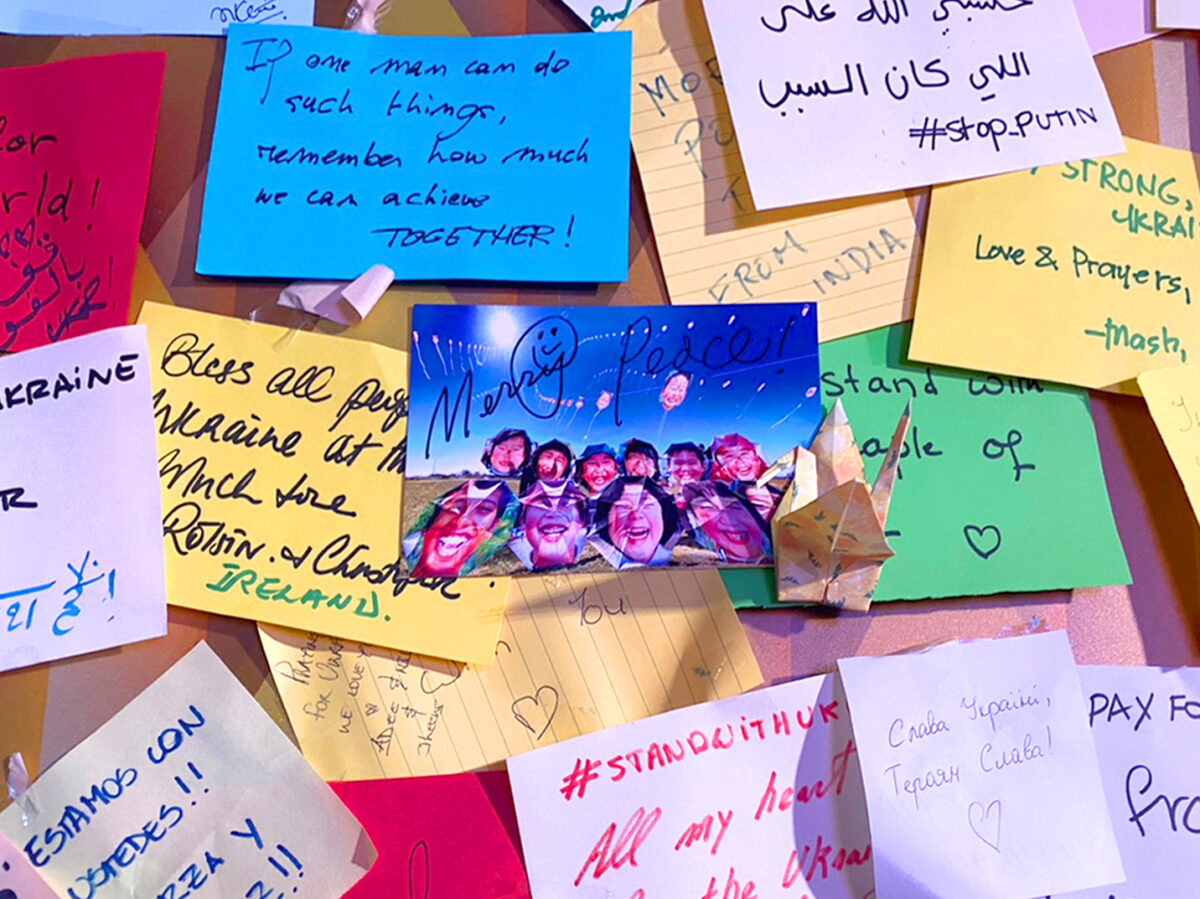 If one man can do
such things,
remember how much
we can achieve
TOGETHER!
حسبي الله على
اللي كان السبب
#STOP_PUTIN
FROM
INDIA
STRONG,
UKRAI
Love & Prayers,
-Mash,
for
rld!
UKRAINE
R
Bless all peop
Ukraine at th
Much love
Roisin. & Christopher
IRELAND.
Merry Peace!
Stand with
ople of
You
for UKR
WE LOVE Y
ESTAMOS CON
USTEDES!!
RZA Y
Z!!
#STANDWITHUK
All my heart
the Ukrai
Слава Україні,
Героям Слава!
PAX FO
fro